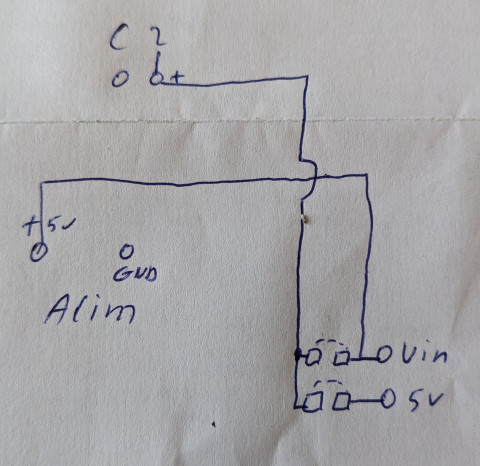 C 2
+
+5v
GND
Alim
Vin
5V